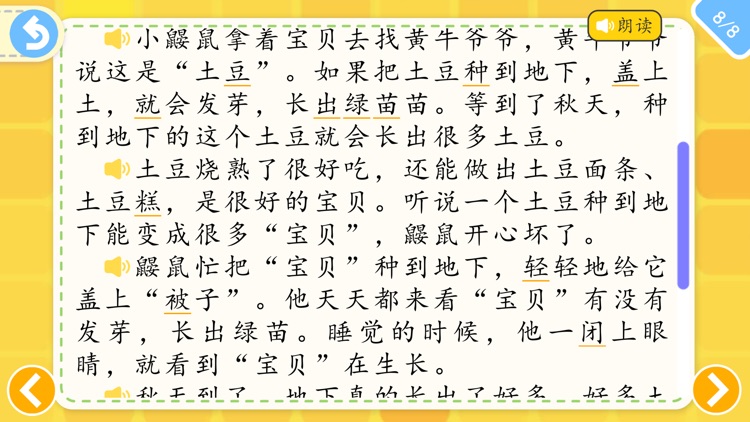 朗读
8/8
小鼹鼠拿着宝贝去找黄牛爷爷，黄牛爷爷
说这是“土豆”。如果把土豆种到地下，盖上
土，就会发芽，长出绿苗苗。等到了秋天，种
到地下的这个土豆就会长出很多土豆。
土豆烧熟了很好吃，还能做出土豆面条、
土豆糕，是很好的宝贝。听说一个土豆种到地
下能变成很多“宝贝”，鼹鼠开心坏了。
鼹鼠忙把“宝贝”种到地下，轻轻地给它
盖上“被子”。他天天都来看“宝贝”有没有
发芽，长出绿苗。睡觉的时候，他一闭上眼
睛，就看到“宝贝”在生长。
秋天到了，地下真的长出了好多、好多土